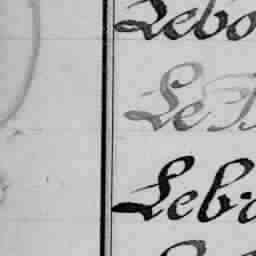 Lebo
Le B
Leb